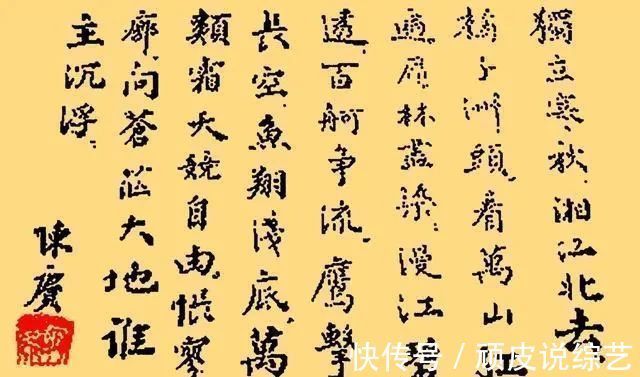 獨立寒秋湘江北去
橘子洲頭看萬山
遍層林盡染漫江
透百舸争流鷹擊
長空魚翔淺底萬
類霜天競自由悵寥
廓問蒼茫大地誰
主沉浮
陳賡
快传号 / 顽皮说综艺